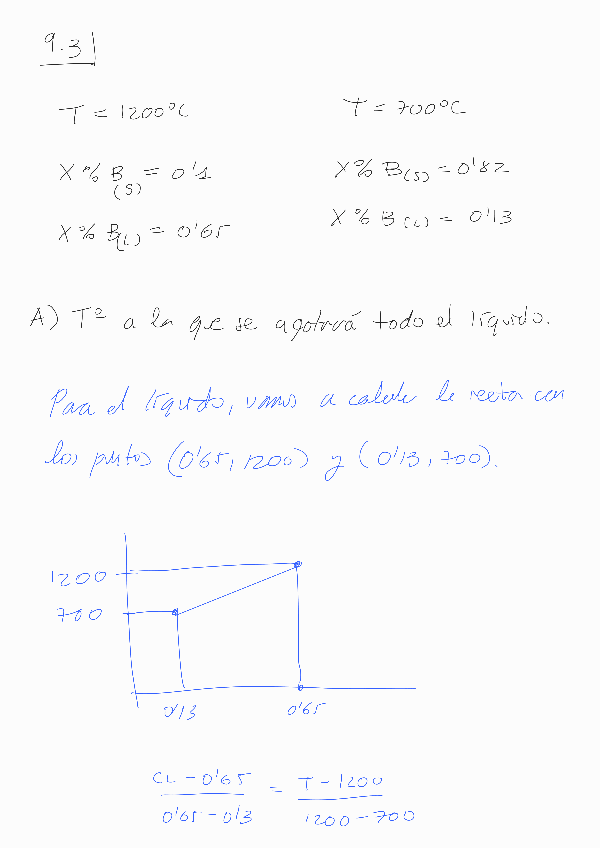 9.3
T = 1200ºC
T = 700ºC
X % B(S) = 0'1
X % B(S) = 0'82
X % B(L) = 0'65
X % B(L) = 0'13
A) Tª a la qe se agotará todo el líquido.
Para el líquido, vamos a calcular la recta con
los puntos (0'65, 1200) y (0'13, 700).
1200
700
0'13 0'65
CL - 0'65 = T - 1200
0'65 - 0'13 1200 - 700